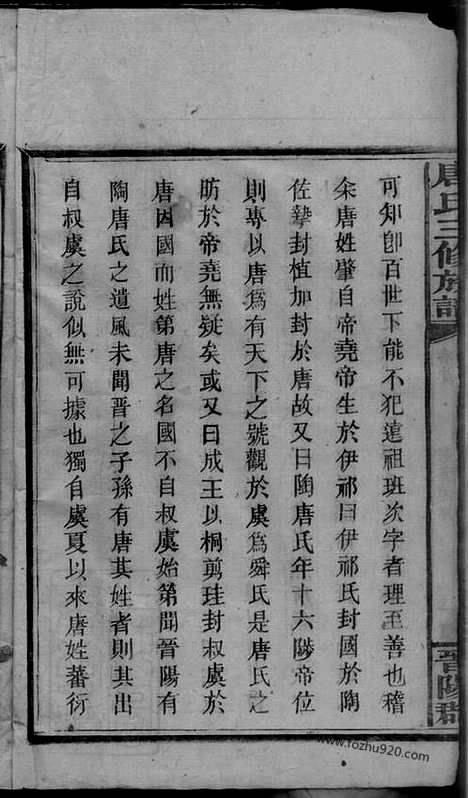 唐氏三修族譜
晉陽郡
可知卽百世下能不犯遠祖班次字者理至善也稽
余唐姓肇自帝堯帝生於伊祁曰伊祁氏封國於陶
佐摯封植加封於唐故又曰陶唐氏年十六陟帝位
則專以唐爲有天下之號觀於虞爲舜氏是唐氏之
昉於帝堯無疑矣或又曰成王以桐剪珪封叔虞於
唐因國而姓第唐之名國不自叔虞始第聞晉陽有
陶唐氏之遺風未聞晉之子孫有唐其姓者則其出
自叔虞之說似無可據也獨自虞夏以來唐姓蕃衍
www.fozhu920.com